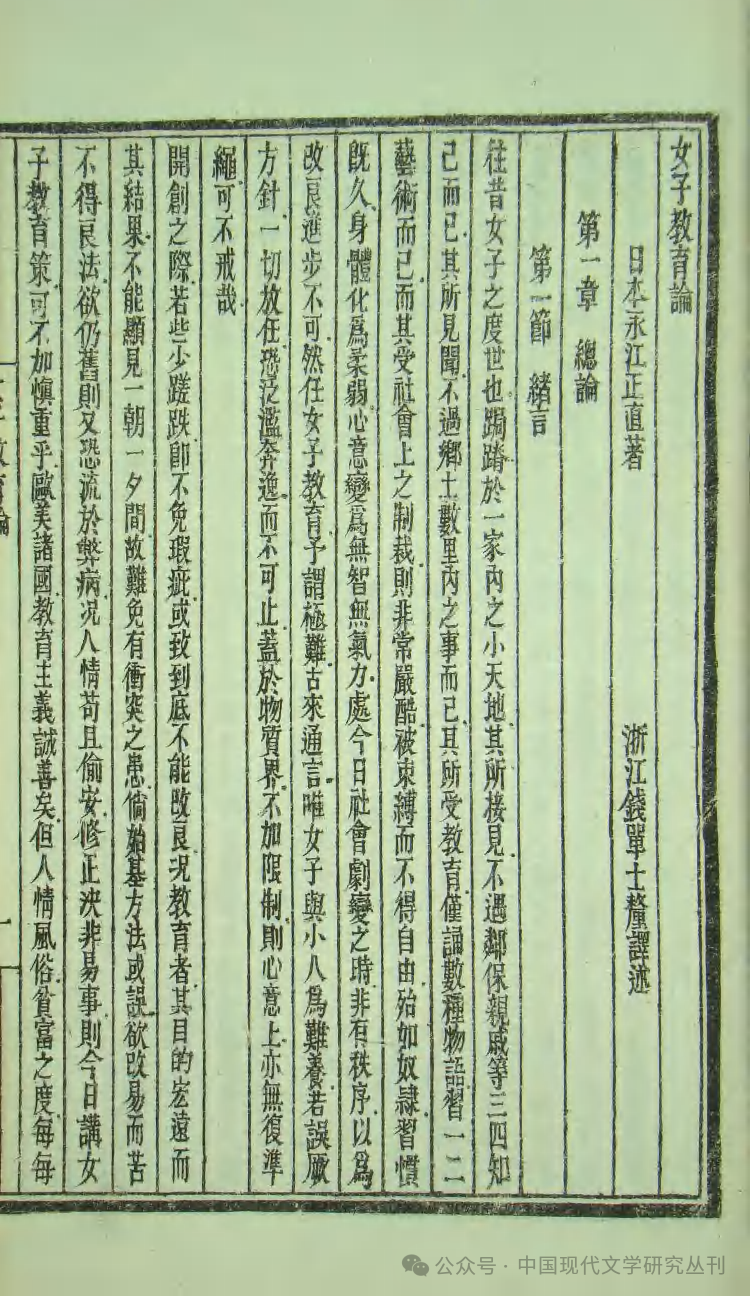 女子教育論
日本永江正直著　浙江錢單士釐譯述
第一章　總論
第一節　緒言
往昔女子之度世也跼蹐於一家內之小天地其所接見不過鄰保親戚等三四知
己而已其所見聞不過鄉土數里內之事而已其所受教育僅誦數種物語習一二
藝術而已而其受社會上之制裁則非常嚴酷被束縛而不得自由殆如奴隷習慣
旣久身體化爲柔弱心意變爲無智無氣力處今日社會劇變之時非有秩序以爲
改良進步不可然任女子教育予謂極難古來通言唯女子與小人爲難養若誤厥
方針一切放任恐泛濫奔逸而不可止蓋於物質界不加限制則心意上亦無復準
繩可不戒哉
開創之際若些少蹉跌卽不免瑕疵或致到底不能改良况教育者其目的宏遠而
其結果不能顯見一朝一夕間故難免有衝突之患倘始基方法或誤欲改易而苦
不得良法欲仍舊則又恐流於弊病况人情苟且偷安修正決非易事則今日講女
子教育策可不加慎重乎歐美諸國教育主義誠善矣但人情風俗貧富之度每每
公众号 · 中国现代文学研究丛刊